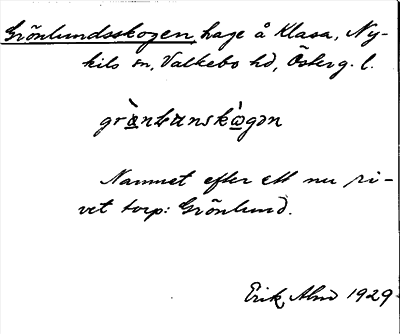 Grönlundsskogen, hage å Klasa, Ny-
kils sn, Valkebo hd, Österg. l.
Namnet efter ett nu ri-
vet torp: Grönlund.
Erik Alm 1929